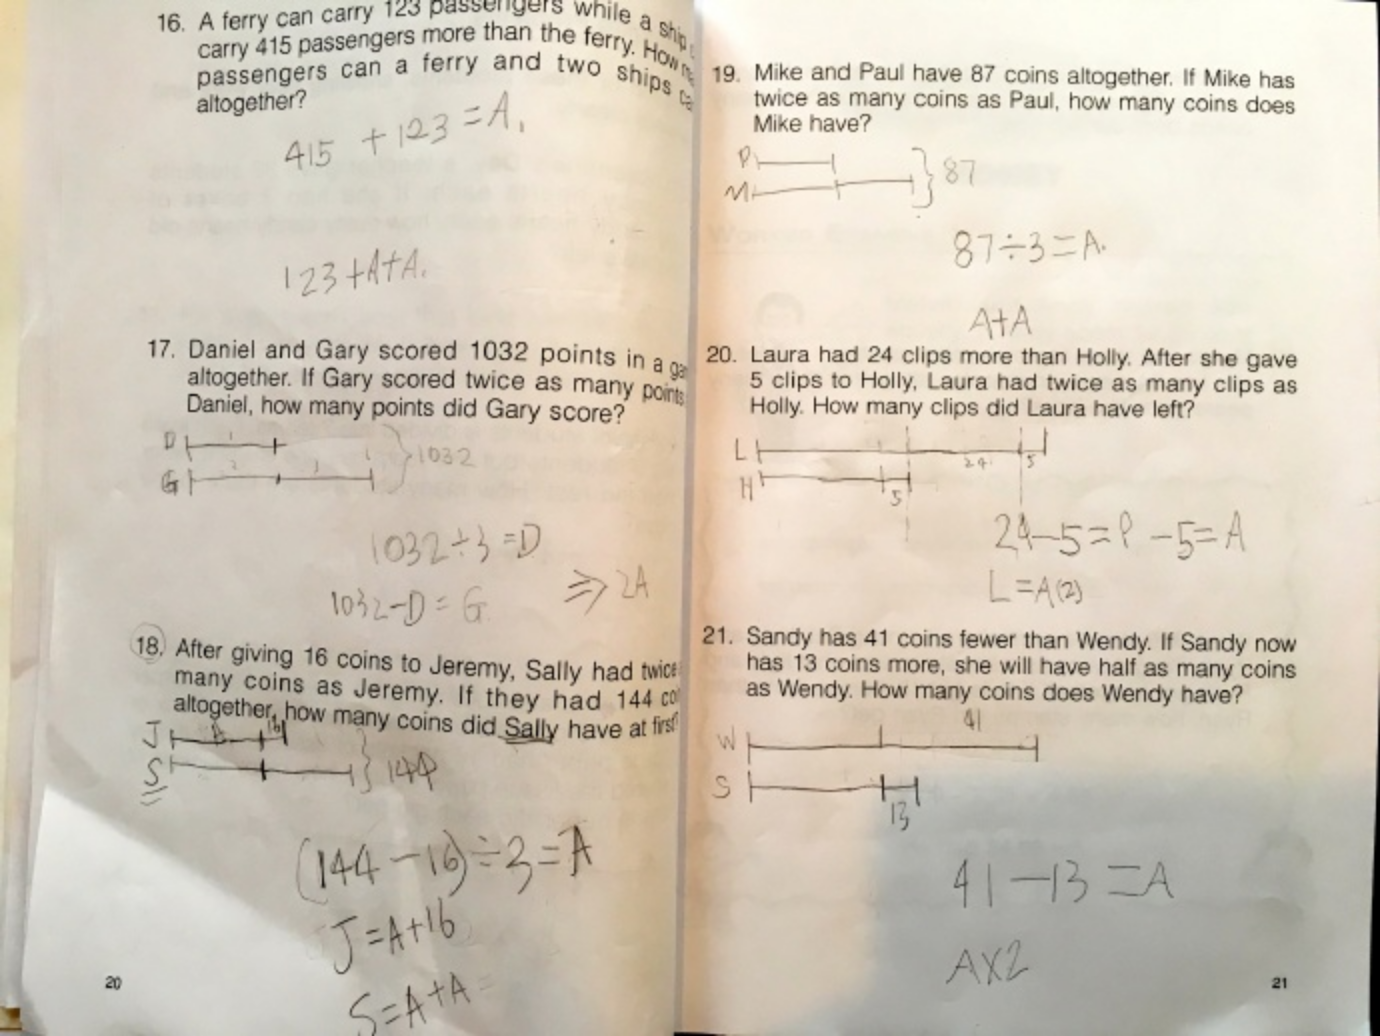 16. A ferry can carry 123 passengers while a ship
carry 415 passengers more than the ferry. How
passengers can a ferry and two ships
altogether?
415 + 123 = A.
123+A+A.
17. Daniel and Gary scored 1032 points in a
altogether. If Gary scored twice as many points
Daniel, how many points did Gary score?
D
G
1032
1032÷3=D
1032-D=G
⇒ 2A
18. After giving 16 coins to Jeremy, Sally had twice
many coins as Jeremy. If they had 144
altogether, how many coins did Sally have at first
J 16
S
144
(144-16)÷3=A
J=A+16
S=A+A=
20
19. Mike and Paul have 87 coins altogether. If Mike has
twice as many coins as Paul, how many coins does
Mike have?
P
M
87
87÷3=A.
A+A
20. Laura had 24 clips more than Holly. After she gave
5 clips to Holly, Laura had twice as many clips as
Holly. How many clips did Laura have left?
L 24 5
H 5
24-5=P-5=A
L=A(2)
21. Sandy has 41 coins fewer than Wendy. If Sandy now
has 13 coins more, she will have half as many coins
as Wendy. How many coins does Wendy have?
41
W
S
13
41-13=A
AX2
21